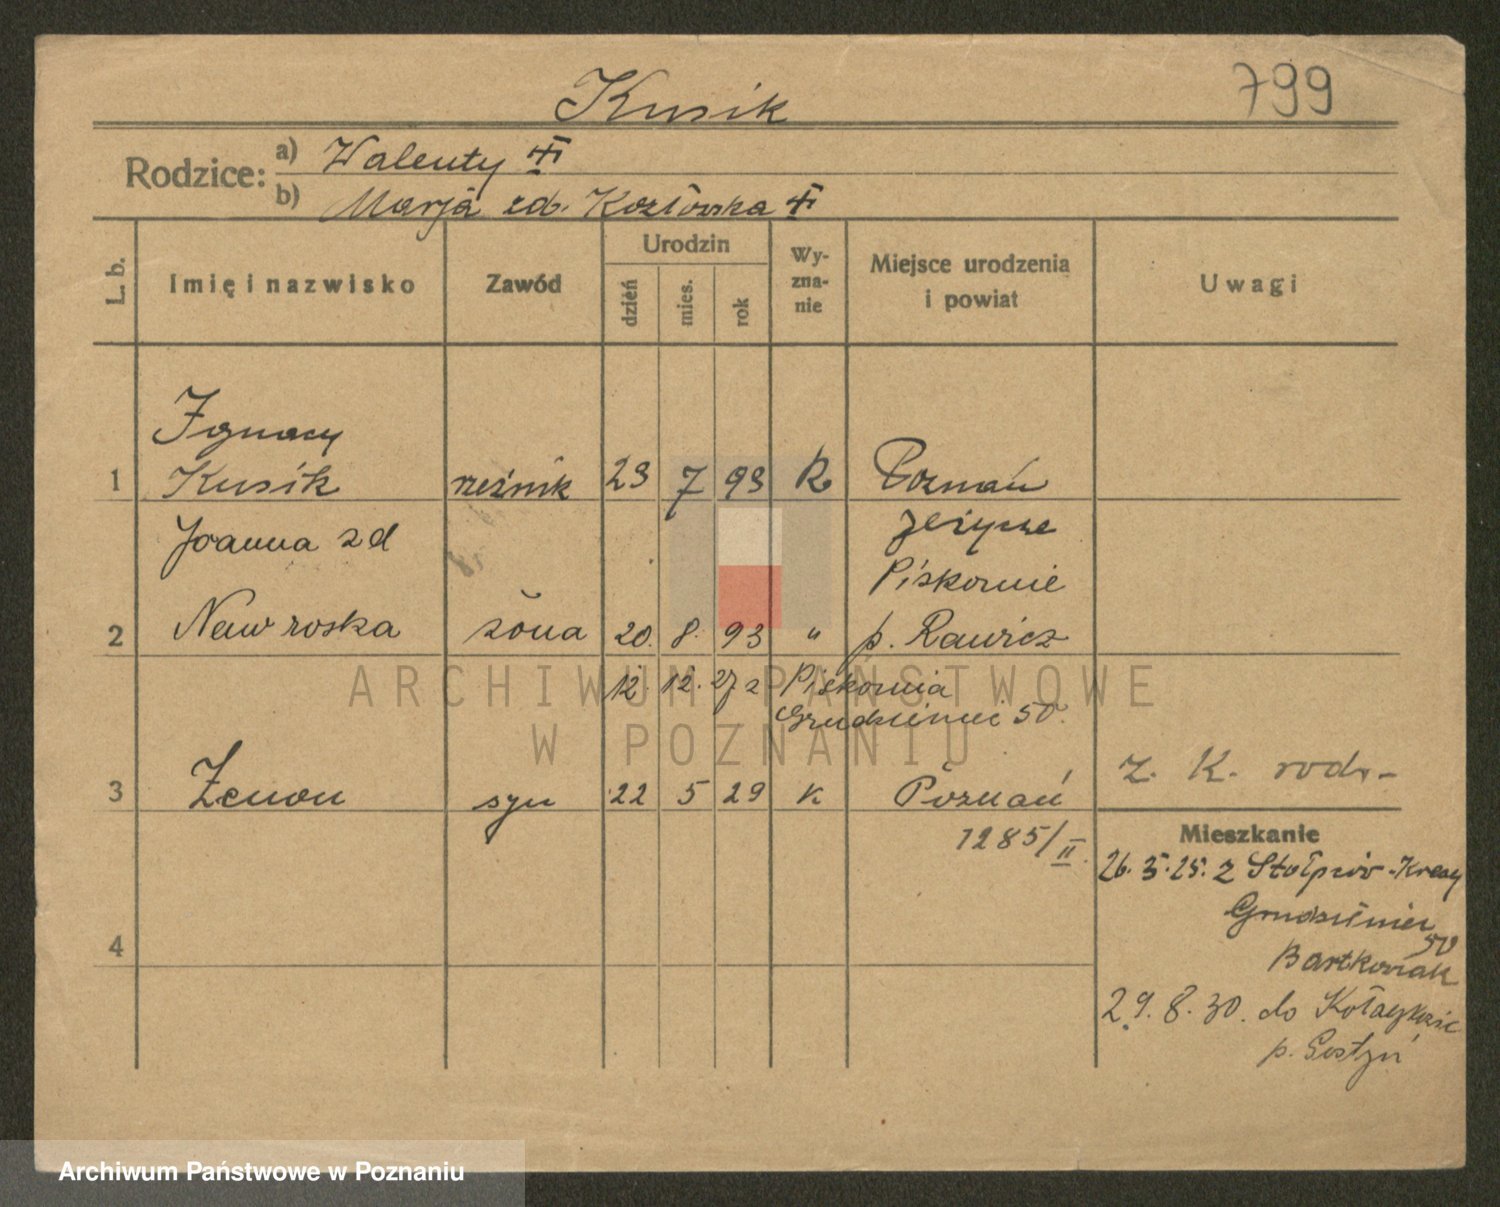 Kusik
799
Rodzice:
a) Walenty
b) Marja zd. Kozłowska
L. b.
Imię i nazwisko
Zawód
Urodzin
dzień
mies.
rok
Wy-
zna-
nie
Miejsce urodzenia
i powiat
Uwagi
Ignacy
1 Kusik rzeźnik 23 7 93 R Poznań
Jeżyce
Joanna zd
Piskornie
2 Nawroska żona 20. 8. 93 " p. Rawicz
12. 12. 27 z Piskornia
Grudzieniec 50.
3 Zenon syn 22 5 29 k Poznań
z. K. rodz.-
1285/II.
Mieszkanie
26. 5. 25. z Stołpców-Kresy
Grudzieniec
50
Bartkowiak
4
29. 8. 30. do
p. Gostyń
ARCHIWUM PAŃSTWOWE
W POZNANIU
Archiwum Państwowe w Poznaniu